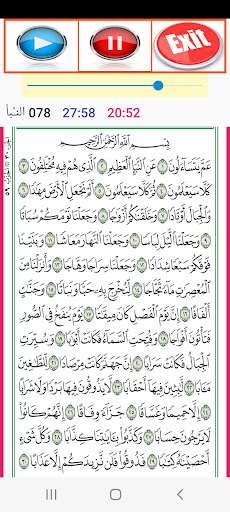 Exit
النبأ 078 27:58 20:52
الجزء ٣٠ الحزب ٥٩
بِسْمِ ٱللَّهِ ٱلرَّحْمَٰنِ ٱلرَّحِيمِ
عَمَّ يَتَسَآءَلُونَ ١ عَنِ ٱلنَّبَإِ ٱلْعَظِيمِ ٢ ٱلَّذِى هُمْ فِيهِ مُخْتَلِفُونَ ٣
كَلَّا سَيَعْلَمُونَ ٤ ثُمَّ كَلَّا سَيَعْلَمُونَ ٥ أَلَمْ نَجْعَلِ ٱلْأَرْضَ مِهَٰدًا ٦
وَٱلْجِبَالَ أَوْتَادًا ٧ وَخَلَقْنَٰكُمْ أَزْوَٰجًا ٨ وَجَعَلْنَا نَوْمَكُمْ سُبَاتًا
٩ وَجَعَلْنَا ٱلَّيْلَ لِبَاسًا ١٠ وَجَعَلْنَا ٱلنَّهَارَ مَعَاشًا ١١ وَبَنَيْنَا
فَوْقَكُمْ سَبْعًا شِدَادًا ١٢ وَجَعَلْنَا سِرَاجًا وَهَّاجًا ١٣ وَأَنزَلْنَا مِنَ
ٱلْمُعْصِرَٰتِ مَآءً ثَجَّاجًا ١٤ لِّنُخْرِجَ بِهِۦ حَبًّا وَنَبَاتًا ١٥ وَجَنَّٰتٍ
أَلْفَافًا ١٦ إِنَّ يَوْمَ ٱلْفَصْلِ كَانَ مِيقَٰتًا ١٧ يَوْمَ يُنفَخُ فِى ٱلصُّورِ
فَتَأْتُونَ أَفْوَاجًا ١٨ وَفُتِحَتِ ٱلسَّمَآءُ فَكَانَتْ أَبْوَٰبًا ١٩ وَسُيِّرَتِ
ٱلْجِبَالُ فَكَانَتْ سَرَابًا ٢٠ إِنَّ جَهَنَّمَ كَانَتْ مِرْصَادًا ٢١ لِّلطَّٰغِينَ
مَـَٔابًا ٢٢ لَّٰبِثِينَ فِيهَآ أَحْقَابًا ٢٣ لَّا يَذُوقُونَ فِيهَا بَرْدًا وَلَا شَرَابًا
٢٤ إِلَّا حَمِيمًا وَغَسَّاقًا ٢٥ جَزَآءً وِفَاقًا ٢٦ إِنَّهُمْ كَانُوا۟
لَا يَرْجُونَ حِسَابًا ٢٧ وَكَذَّبُوا۟ بِـَٔايَٰتِنَا كِذَّابًا ٢٨ وَكُلَّ شَىْءٍ
أَحْصَيْنَٰهُ كِتَٰبًا ٢٩ فَذُوقُوا۟ فَلَن نَّزِيدَكُمْ إِلَّا عَذَابًا ٣٠